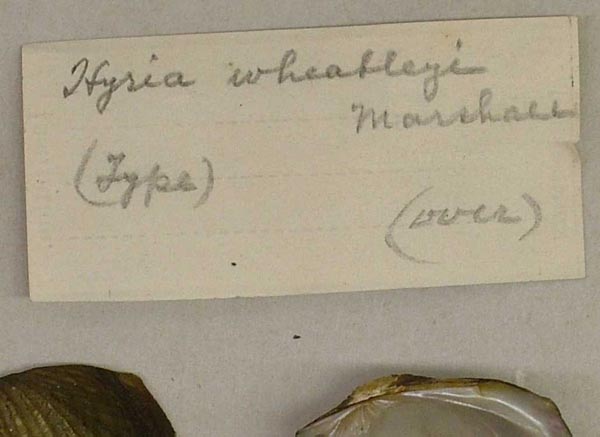 Hyria wheatleyi
Marshall
(Type)
(over)